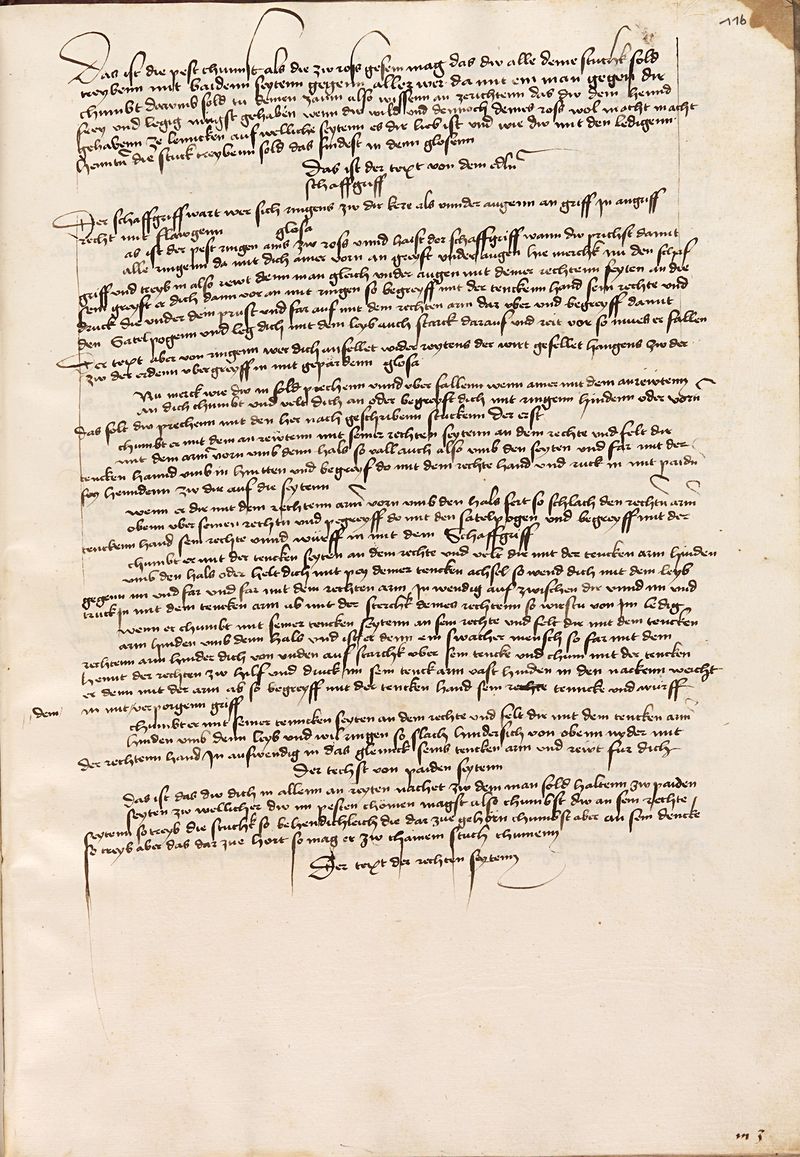 116
Das ist die pest chunst als die zw ross gesein mag das dw alle deine stuckh sold
treybenn mit baidenn seytenn gegenn allez wer da mit ein man gegen dir
chumbt darumb sold tu deinen zaum also wissenn an zerichtenn das dw dein hennd
frey und ledig mugst gehaben wenn du wild und dennoch deines ross wol macht macht
gehabenn ze lenncken auf welliche seytenn es dir lieb ist und wie dw mit den ledigenn
henntn die stuck treybenn sold das findest in denn glosenn
Das ist der text von dem edln
schaffgriff
Der schaffgriff wart wer sich ringens zw dir kere als unnder augenn an griff in angriff
recht mit flawgenn glosa
as ist der pest ringen ains zw ross unnd haist der schaffgriff wann dw prichst damit
alle ringenn da mit dich ainer vorn an greyft under augen hie merckh nu den schaf
griff und treyb in also rewt denn man gleich under augen mit deiner rechtenn seyten an die
sein greyft er dich dann vor an mit ringen so begreyff mit der tenckenn hand sein rechte und
druck die under dein prust und far auf mit dem rechten arm dar uber und begreyff damit
den Satelpogenn und leg dich mit dem leyb auch starck darauf und reit vor so mues er fallen
Der text aber von ringenn wer dich anfellet wider reytens der wirt gefellet hangens zw der
zw der erdenn ubergreyff in mit gepärdenn glosa
Nu merck wie dw in sold prechenn unnd uber fallenn wenn ainer mit dem anrewtenn
an dich chumbt und velt dich an oder begreyft dich mit ringenn hindenn oder vorn
das solt dw prechenn mit den her nach geschribenn stuckenn Der erst
chumbt er mit dem an rewtenn mit seiner rechten seytenn an dein rechte und felt dir
mit dem arm vorn umb denn hals so vall auch also umb den seyten und far mit der
tencken hannd umb in hintten und begreyf do mit dein rechte hand und ruck in mit paiden
henndenn zw dir auf die seytenn
wenn er dir mit dem rechtenn arm vorn umb den hals fert so schlach den rechtn arm
obenn uber seinen rechtn und pegreyff do mit den satelpogen und begreyff mit der
tenckenn hand sein rechte unnd würff in mit dem Schaffgriff
chumbt er mit der tencken seyten an dein rechte und velt dir mit der tencken arm hinden
umb den hals oder helt dich mit pey deiner tencken achsel so wend dich mit dem leyb
gegenn im und far und far mit dem rechten arm in wendig auf zwischen dir unnd im und
truck in mit dem tencken arm ab mit der sterchk deines rechtenn so wirstu von im ledig
wenn er chumbt mit seiner tencken seytenn an sein rechte und felt dir mit dem tencken
arm hinden umb denn hals und ist er denn ein swacher mensch so far mit dem
rechtenn arm hinder dich von unden auf starchk uber sein tencke und chum mit der tencken
hennt der rechten zw hilf und druck im sein tenck arm vast hinden in den nackenn weicht
er denn mit der arm ab so begreyff mit der tencken hand sein rechte tenncke und würff
in mit verporgenn griff
dem
chumbt er mit seiner tenncken seyten an dein rechte und felt dir mit dem tencken arm
hinden umb denn leyb und wil ringen so slach hindersich von obenn nyder mit
der rechtenn hand in auswendig in das glennck seins tencken arm und rewt fur dich
Der techst von paiden seytenn
Das ist das dw dich in allenn an reyten nachet zw dem man sold haltenn zw paiden
seyten zw wellicher dw im pesten chömen magst also chumbst dw an sein rechte
seytenn so treyb die stuckh so behendichleich die dar zue gehörn chumbst aber an sein dencke
so treyb aber das dar zue hort so mag er zw chainem stuckh chumenn
Der text der rechten seytenn
m 3